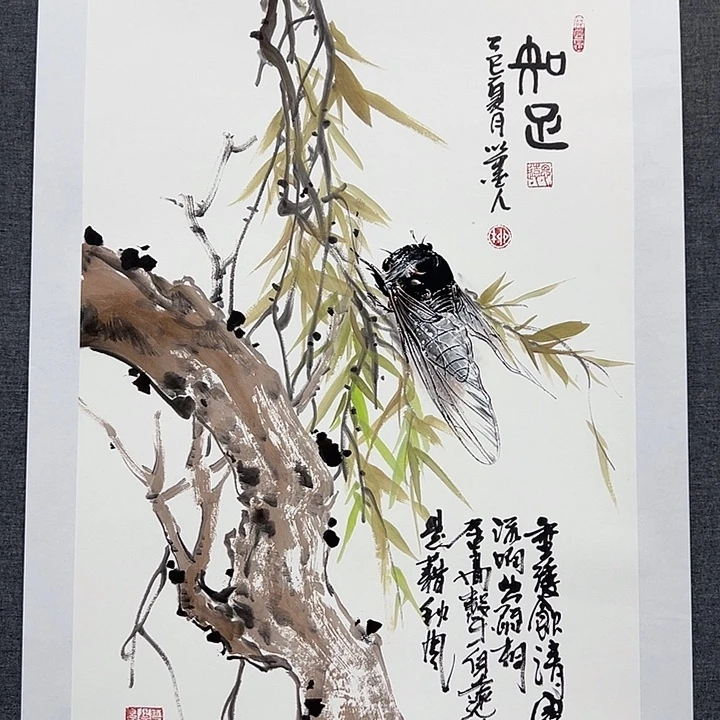 知足
乙巳夏月
垂緌飲清露
流响出疏桐
居高聲自遠
是藉秋風